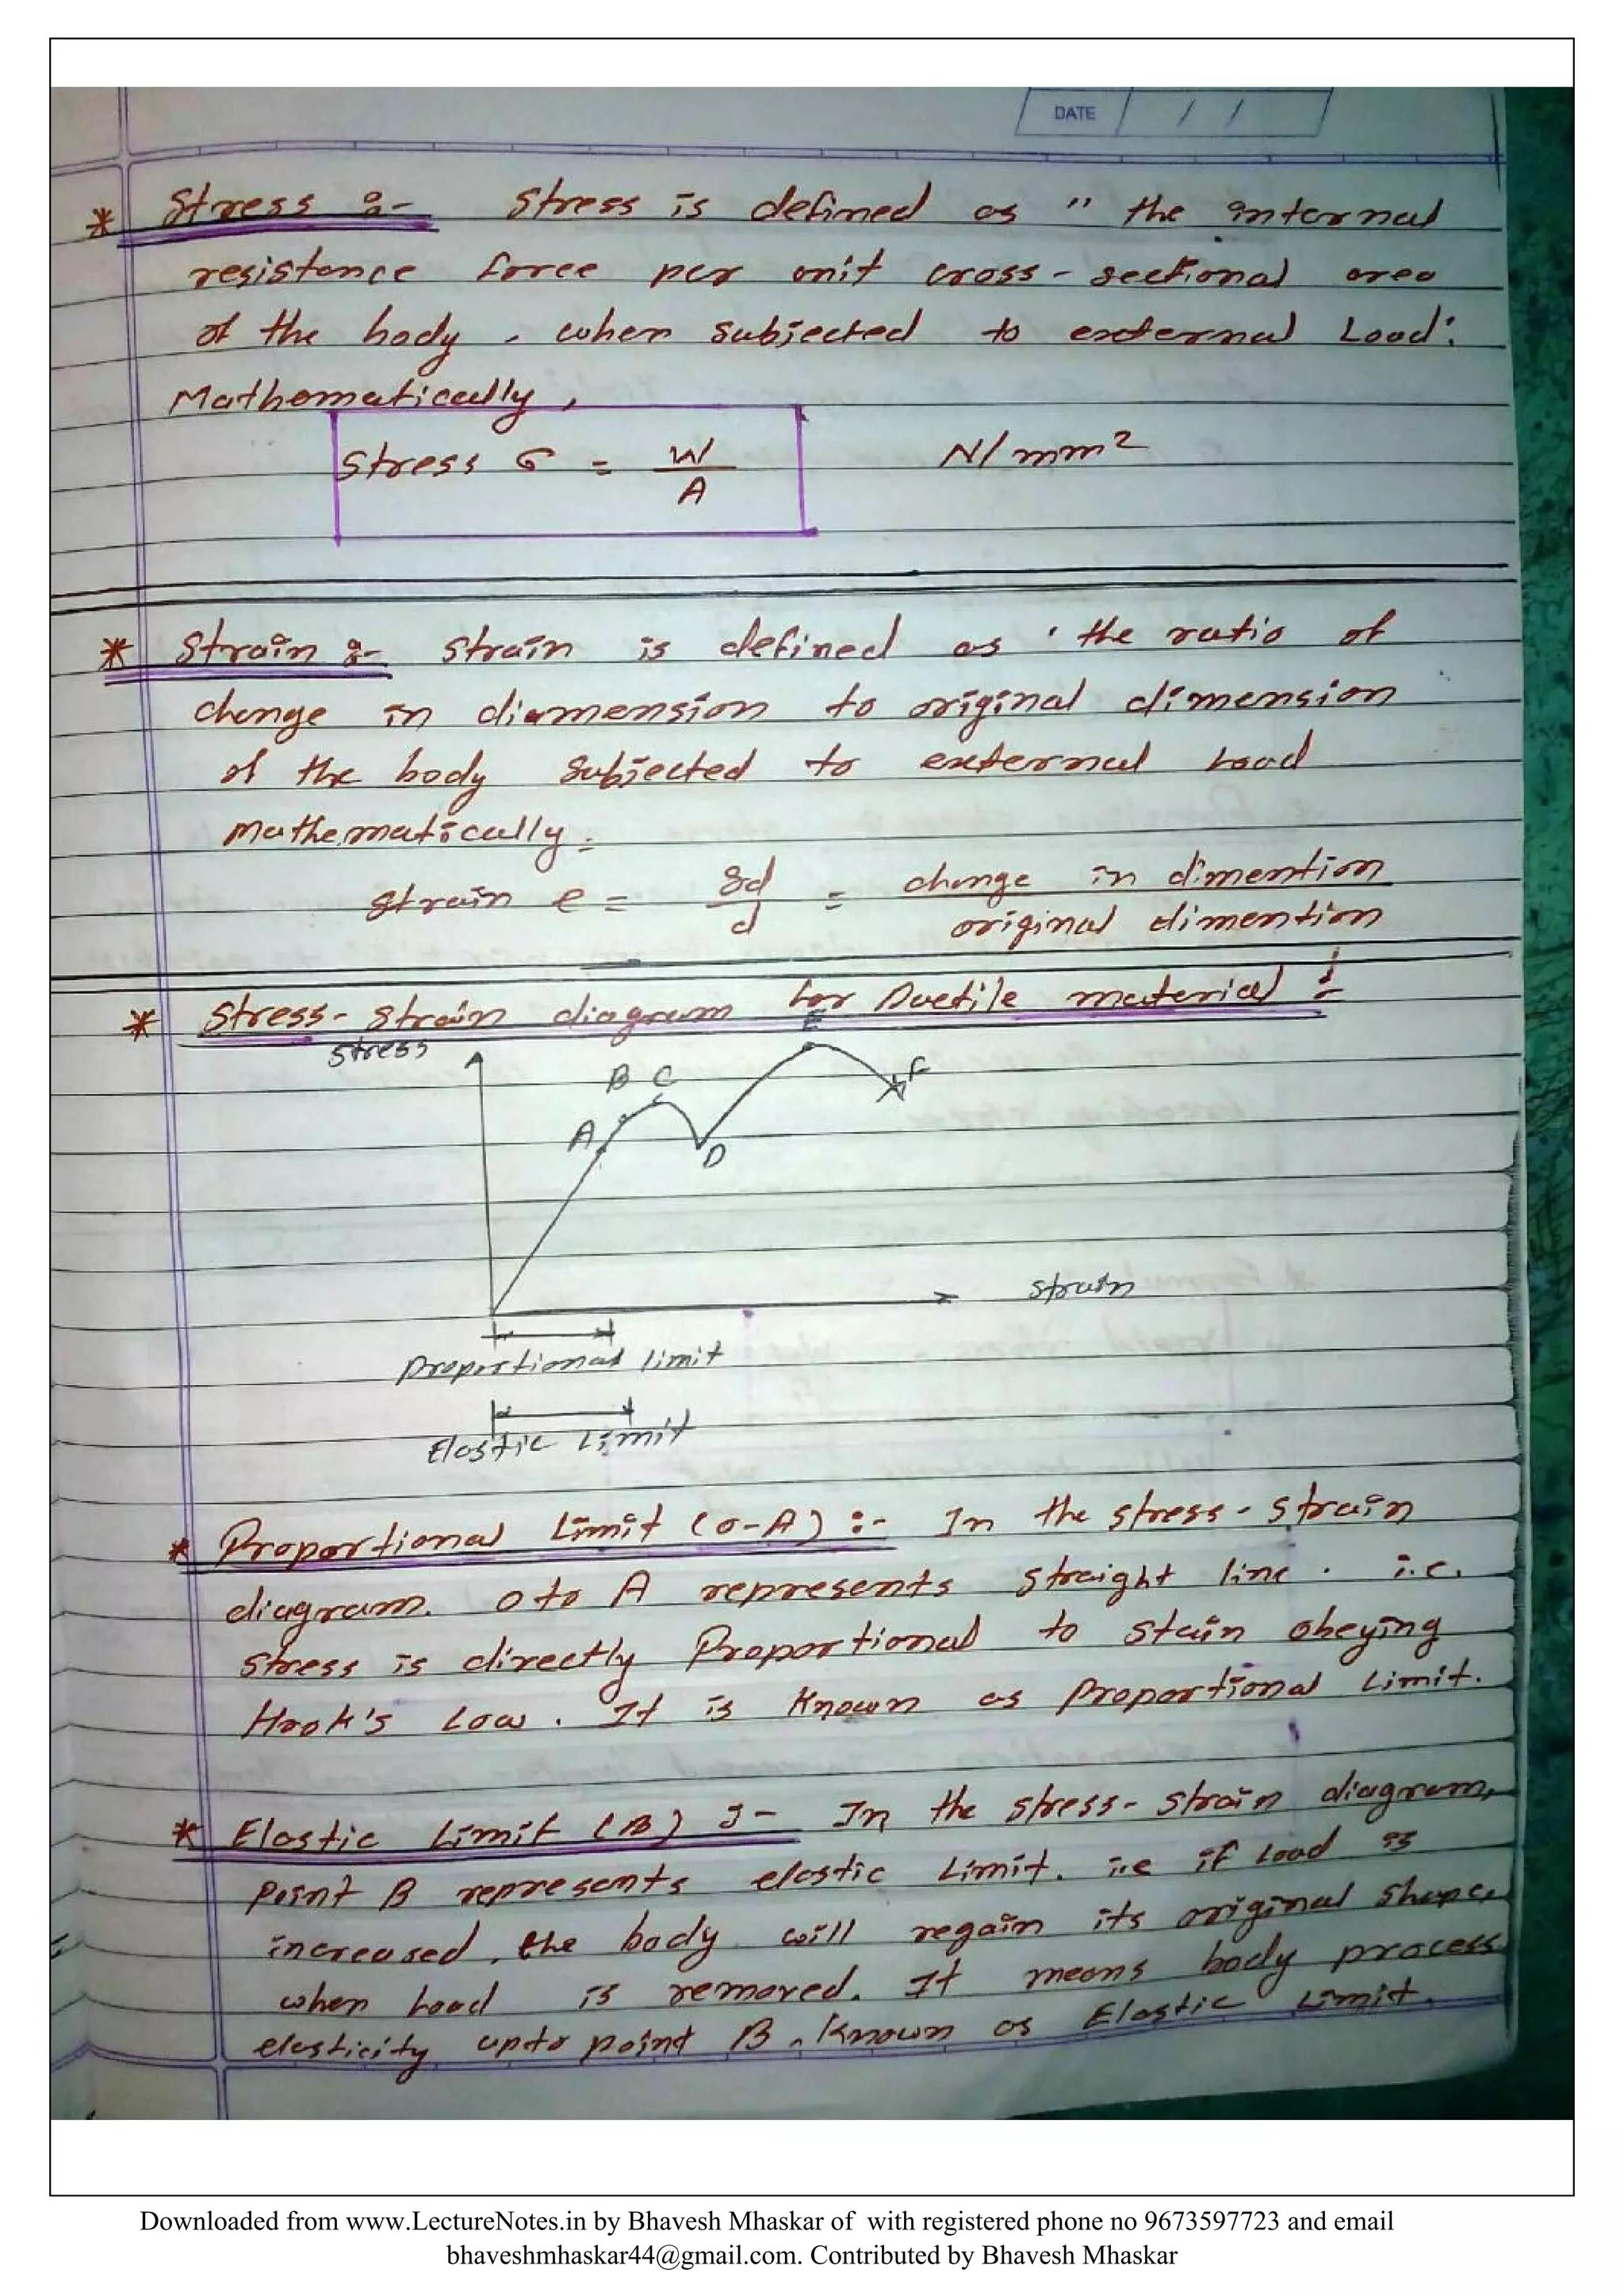 DATE / /
* Stress :- Stress is defined as " the internal
resistance force per unit cross-sectional area
of the body, when subjected to external Load.
Mathematically,
Stress σ = W/A N/mm²
* Strain :- Strain is defined as ' the ratio of
change in diamension to original dimension
of the body subjected to external Load
Mathematically =
strain e = δd/d = change in dimention / original dimention
* Stress-strain diagram for Ductile material :-
Stress
E
B C F
A
D
Strain
Proportional limit
Elastic Limit
* Proportional Limit (O-A) :- In the stress-strain
diagram. O to A represents straight line. i.e.
stress is directly Proportional to stain obeying
Hook's Law. It is Known as Proportional Limit.
* Elastic Limit (B) :- In the stress-strain diagram,
Point B represents elastic Limit. i.e if Load is
increased, the body will regain its original shape,
when Load is removed. It means body process
elasticity upto point B, Known as Elastic Limit.
Downloaded from www.LectureNotes.in by Bhavesh Mhaskar of with registered phone no 9673597723 and email
bhaveshmhaskar44@gmail.com. Contributed by Bhavesh Mhaskar